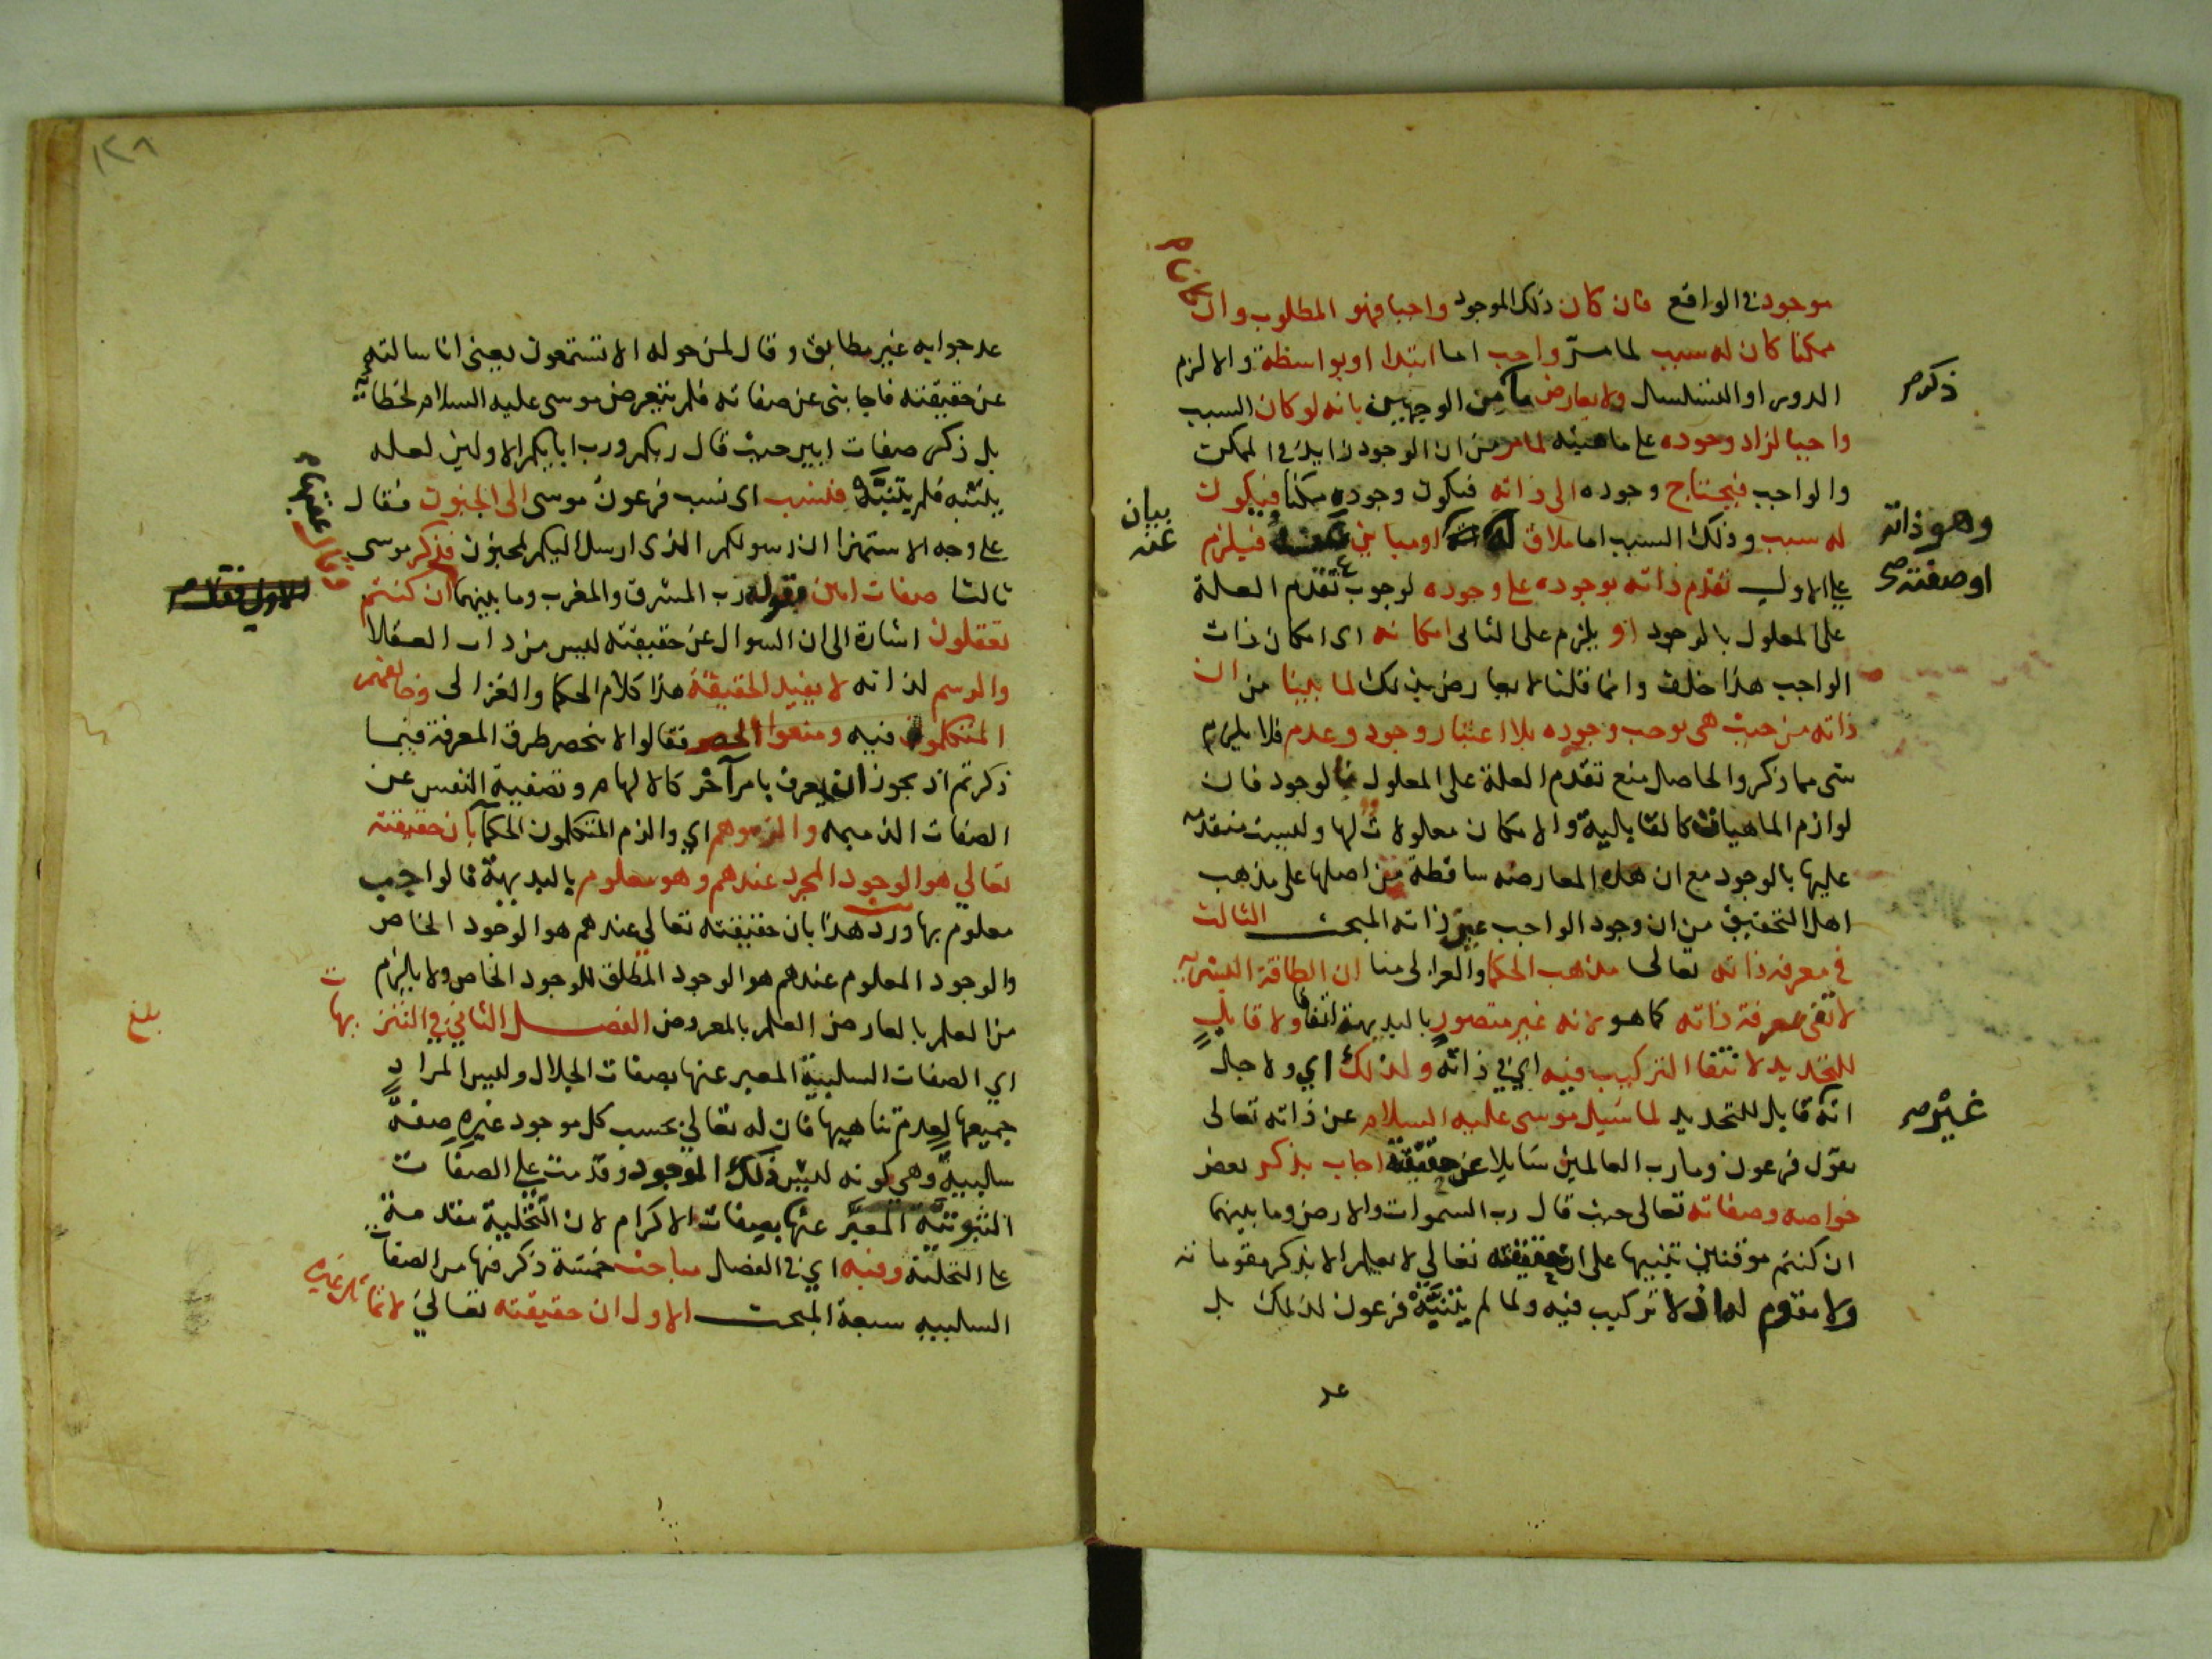 موجود في الواقع فان كان ذلك الموجود واجبا فهو المطلوب وان كان
ممكنا كان له سبب لما مر واجب اما ابتدا او بواسطة والا لزم
الدور او التسلسل ولا يعارض ما من الوجهين بانه لو كان السبب
ذكر صح
واجبا لزاد وجوده على ماهيته لما مر من ان الوجود زايد في الممكن
والواجب فيحتاج وجوده الى ذاته فيكون وجوده ممكنا فيكون
له سبب وذلك السبب اما ملاق او مباين فيلزم
وهو ذاته
او صفته صح
بيان
عنه
على الاول تقدم ذاته بوجوده على وجوده لوجوب تقدم العلة
على المعلول بالوجود او يلزم على الثاني امكانه اى امكان ذات
الواجب هذا خلف وانما قلنا لا يعارض بذلك لما بينا من ان
ذاته من حيث هى توجب وجوده بلا اعتبار وجود وعدم فلا يلزم
شى مما ذكر والحاصل منع تقدم العلة على المعلول بالوجود فان
لوازم الماهيات كالقابلية والامكان معلولات لها وليست متقدمه
عليها بالوجود مع ان هذه المعارضه ساقطة من اصلها على مذهب
اهل التحقيق من ان وجود الواجب عين ذاته المبحث الثالث
في معرفة ذاته تعالى مذهب الحكما والغزالى منا ان الطاقة البشريه
لا تفى بمعرفة ذاته كما هو لانه غير متصور بالبديهة اتفاقا ولا قابل
للتحديد لانتفا التركيب فيه اي في ذاته ولذلك اي ولاجل
انه قابل للتحديد لما سيل موسى عليه السلام عن ذاته تعالى
غير صح
بقول فرعون وما رب العالمين سايلا عن حقيقته اجاب بذكر بعض
خواصه وصفاته تعالى حيث قال رب السموات والارض وما بينهما
ان كنتم موقنين تنبيها على ان حقيقته تعالى لا تعلم الا بذكر مقوماته
ولا مقوم له اذ لا تركيب فيه ولما لم يتنبه فرعون لذلك بل
عد
١٢٨
عد جوابه غير مطابق وقال لمن حوله الا تستمعون يعنى انا سالته
عن حقيقته فاجابنى عن صفاته فلم يتعرض موسى عليه السلام لخطائه
بل ذكر صفات ابين حيث قال ربكم ورب ابايكم الاولين لعله
يتنبه فلم يتنبه فنسب اى نسب فرعون موسى الى الجنون فقال
على وجه الاستهزا ان رسولكم الذى ارسل اليكم لمجنون فذكر موسى
ثالثا صفات ابين بقوله رب المشرق والمغرب وما بينهما ان كنتم
تعقلون اشارة الى ان السوال عن حقيقته ليس من داب العقلا
والرسم لذاته لا يفيد الحقيقة هذا كلام الحكما والغزالى وخالفهم
المتكلمون فيه ومنعوا الحصر فقالوا لا نحصر طرق المعرفة فيما
ذكرتم اذ يجوز ان يعرف بامر آخر كالالهام وتصفية النفس عن
الصفات الذميمه والزموهم اي والزم المتكلمون الحكما بان حقيقته
تعالي هو الوجود المجرد عندهم وهو معلوم بالبديهة فالواجب
معلوم بها ورد هذا بان حقيقته تعالي عندهم هو الوجود الخاص
والوجود المعلوم عندهم هو الوجود المطلق للوجود الخاص ولا يلزم
من العلم بالعارض العلم بالمعروض الفصل الثاني في التنزيهات
بلغ
اي الصفات السلبية المعبر عنها بصفات الجلال وليس المراد
جميعها لعدم تناهيها فان له تعالي بحسب كل موجود غيره صفة
سالبية وهي كونه ليس ذلك الموجود وقدمت على الصفات
الثبوتية المعبر عنها بصفات الاكرام لان التخلية مقدمة
على التحلية وفيه اي في الفصل مباحث خمسة ذكر فيها من الصفات
السلبيه سبعة المبحث الاول ان حقيقته تعالي لا تماثل غيره